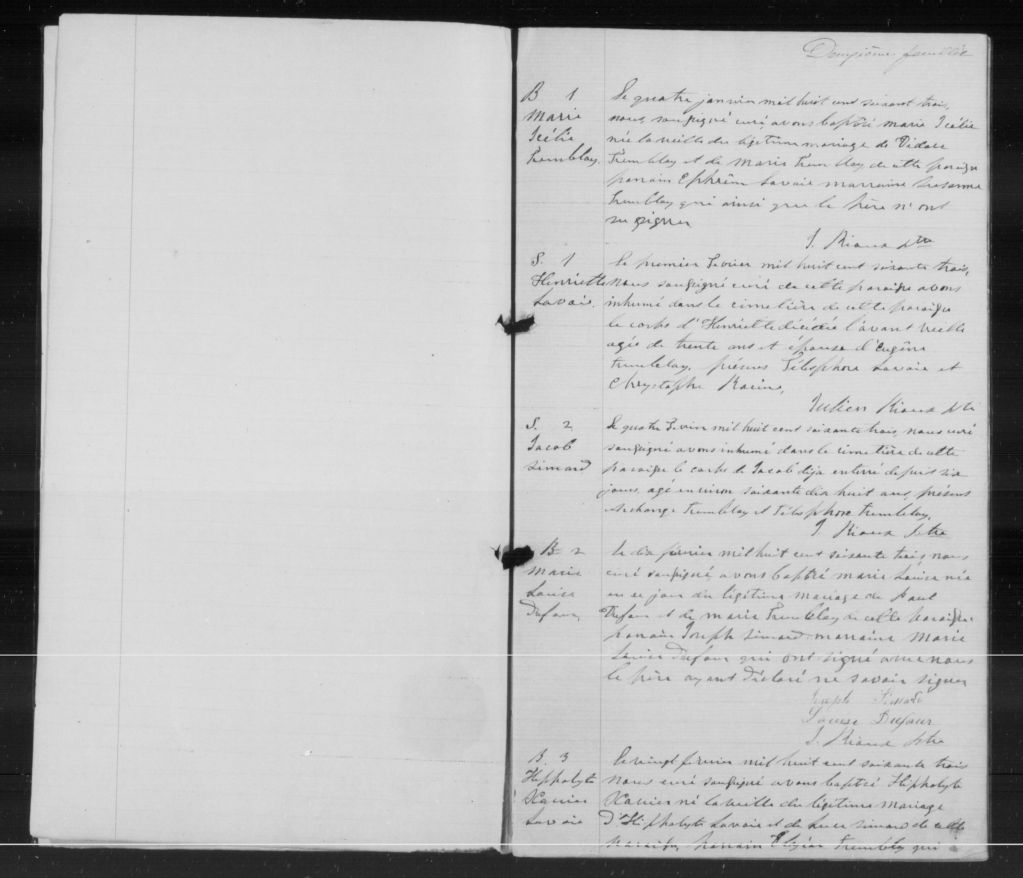 Deuxième feuillet
B 1
Marie
Zélie
Tremblay.
Le quatre janvier mil huit cent soixant trois,
nous, soussigné curé, avons baptisé marie Zélie
née la veille du légitime mariage de
Tremblay et de Marie Tremblay de cette paroisse
parrain Ephrem Lavoie marraine
Tremblay qui ainsi que le père n'ont
su signer
J. Rioux ptre
S. 1
Henriette
Lavoie.
Le premier Fevrier mil huit cent soixante trois,
nous soussigné curé de cette paroisse avons
inhumé dans le cimetière de cette paroisse
le corps d'Henriette décédée l'avant veille
agée de trente ans et épouse d'Eugène
Tremblay. présens Télesphore Lavoie et
Chrystophe Racine,
Julien Rioux ptre
S. 2
Jacob
Simard
Le quatre Fevrier mil huit cent soixante trois, nous curé
soussigné avons inhumé dans le cimetière de cette
paroisse le corps de Jacob déja enterré depuis six
jours, agé environ soixante dix huit ans, présens
Archange Tremblay et Télesphore Tremblay.
J. Rioux ptre
B 2
Marie
Louise
Dufour
Le dix février mil huit cent soixante trois, nous
curé soussigné, avons baptisé marie Louise née
en ce jour du légitime mariage de Paul
Dufour et de marie Tremblay de cette paroisse
parrain Joseph Simard marraine Marie
Louise Dufour qui ont signé avec nous
le père ayant déclaré ne savoir signer
Joseph Simard
Louise Dufour
J. Rioux ptre
B. 3
Hippolyte
Xavier
Lavoie
Le vingt février mil huit cent soixante trois
nous curé soussigné avons baptisé Hippolyte
Xavier né la veille du légitime mariage
d'Hippolyte Lavoie et de Luce Simard de cette
paroisse, parrain Tremblay qui